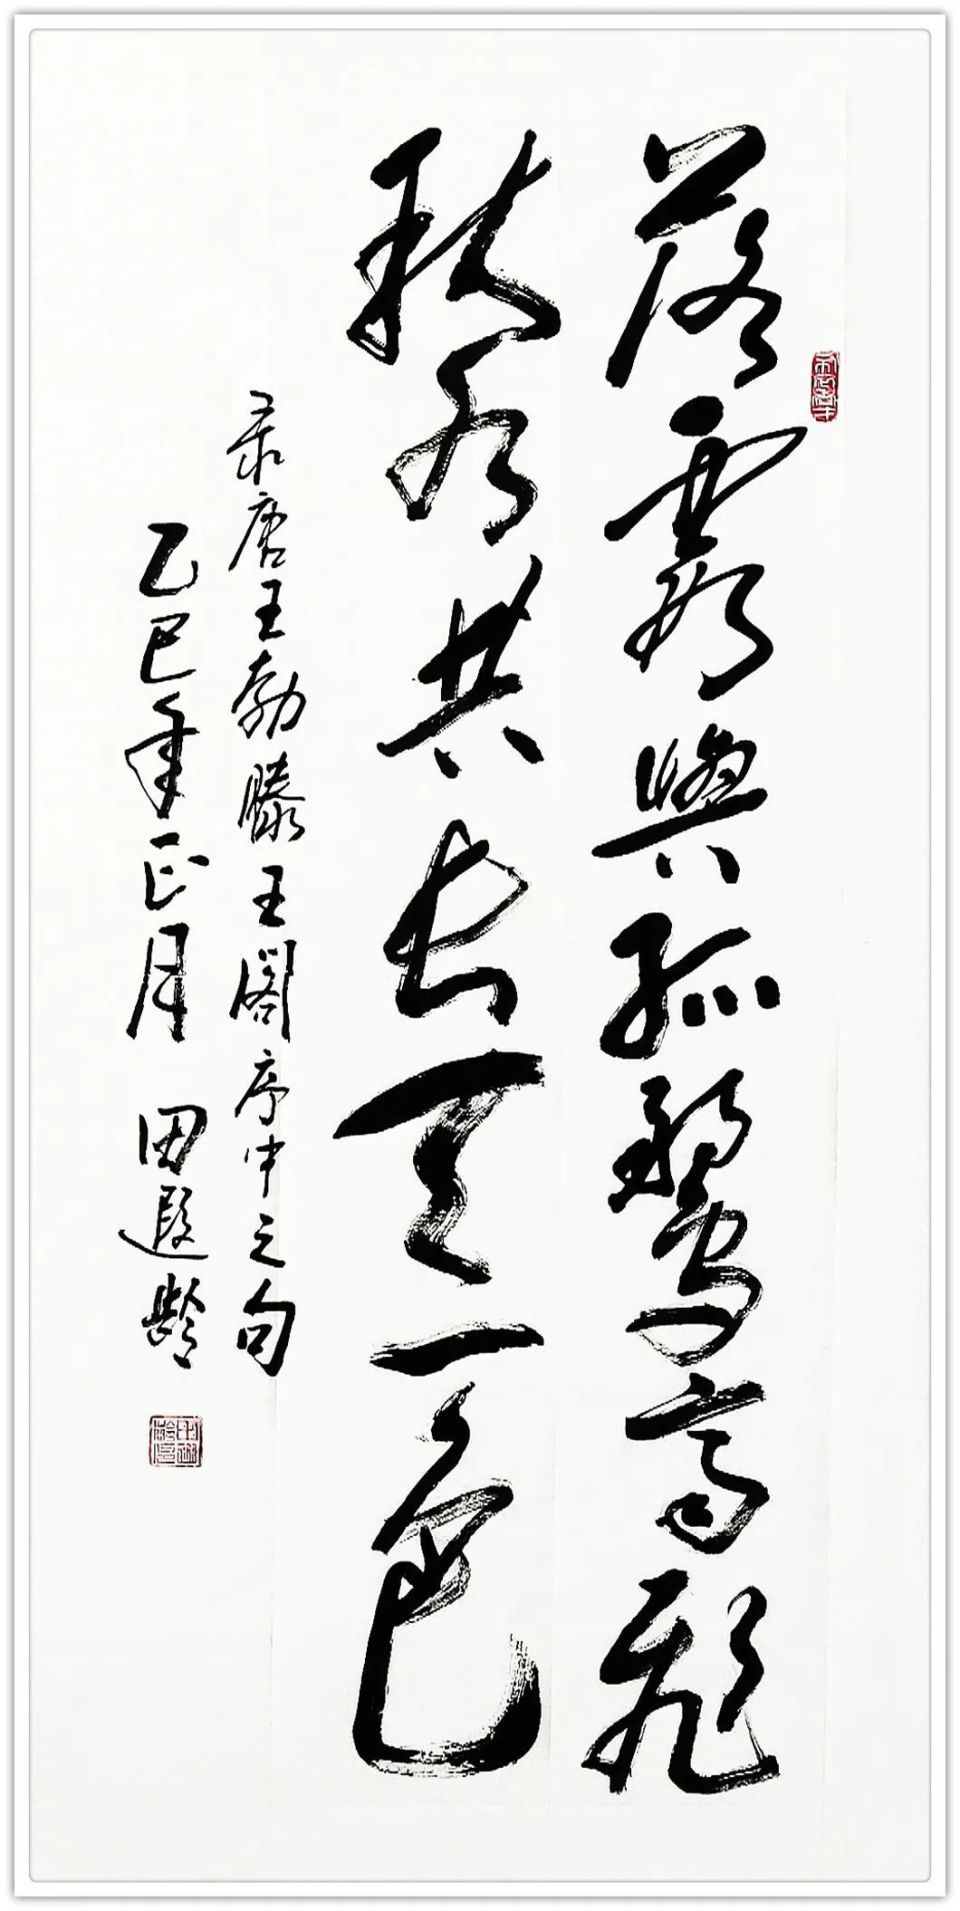 落霞與孤鹜高飛
秋水共長天一色
录唐王勃滕王阁序中之句
乙巳年正月 田遐龄